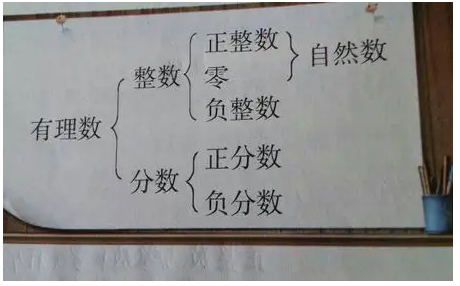 正整数
整数 零 自然数
负整数
有理数
正分数
分数
负分数